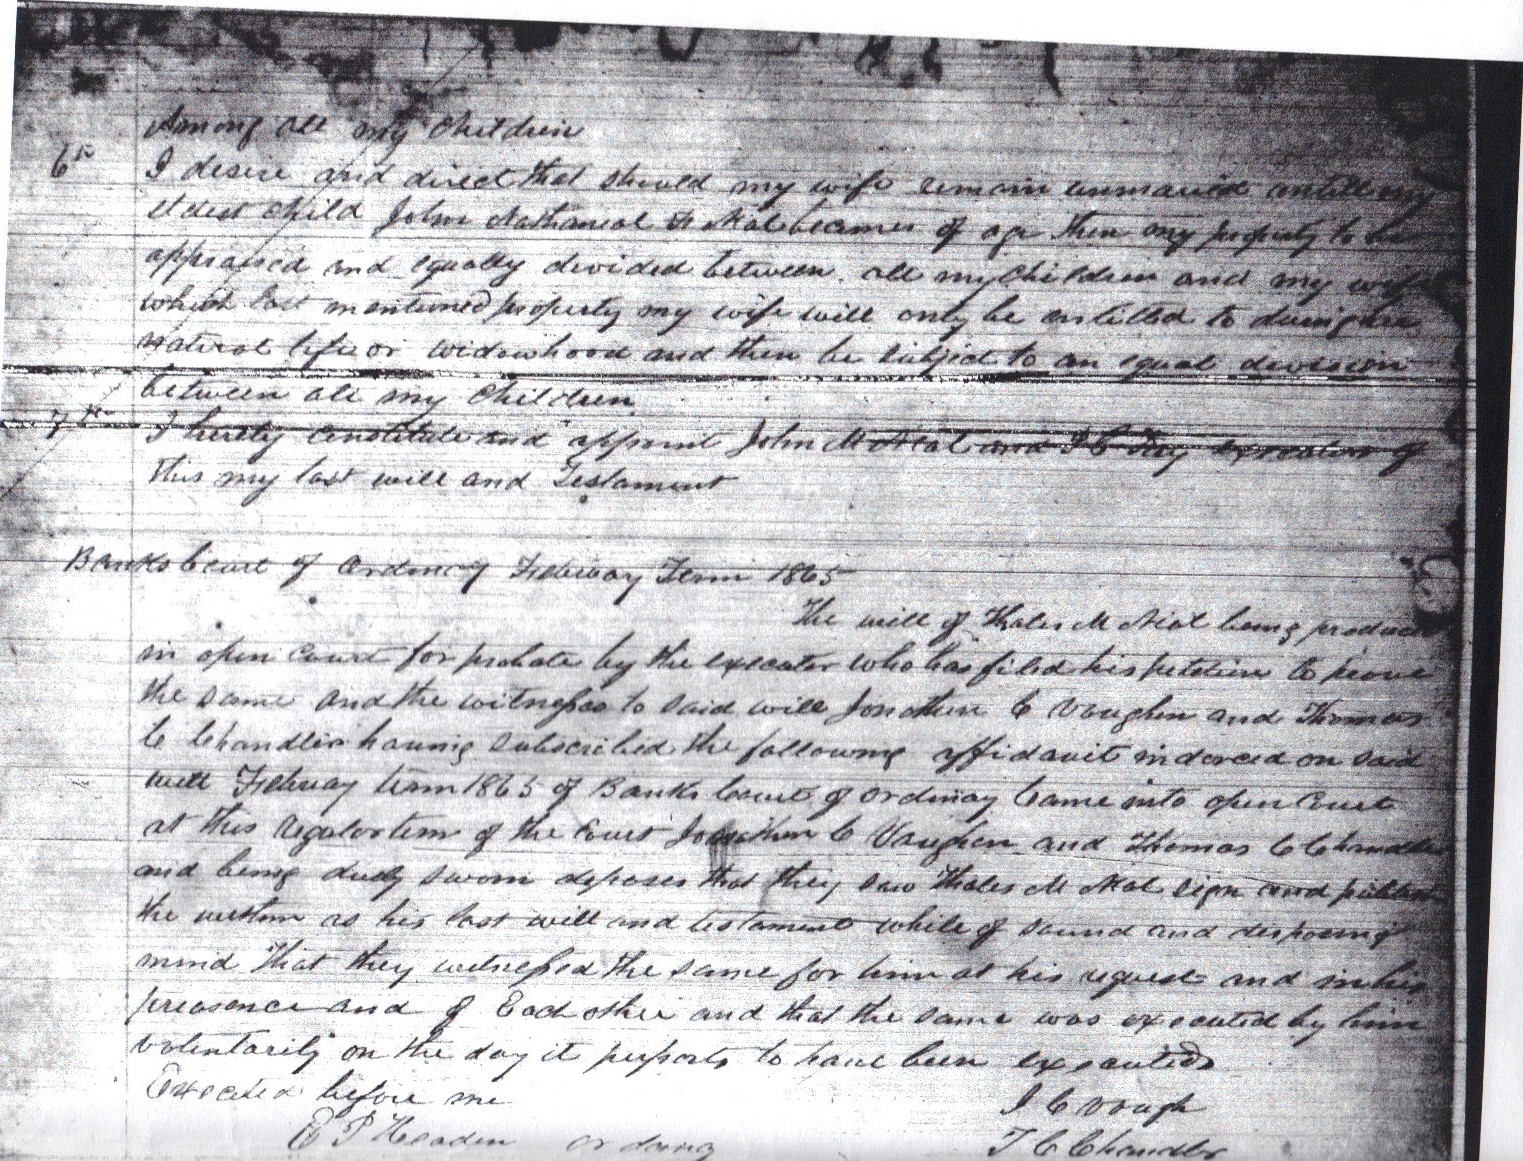 Among all my Children
6th I desire and direct that should my wife remain unmaried untill my
eldest Child John Nathaniel McNeal becomes of age then my property to be
appraised and equally devided between all my Children and my wife
which last mentioned property my wife will only be entitled to during her
natural life or widowhood and then be subject to an equal devision
between all my Children
7th I hereby constitute and appoint John McNeal and executor of
this my last will and Testament
Banks Court of Ordinary Febuary Term 1865
The will of Thales McNeal being produced
in open Court for probate by the executor who has filed his petition to prove
the same and the witnesses to said will Jonathan C Vaughn and Thomas
C Chandler having subscribed the following affidavit indorced on said
will Febuary term 1865 of Banks Court of Ordinary Came into open Court
at this regular term of the Court Jonathan C Vaughn and Thomas C Chandler
and being duly sworn deposes that they saw Thales McNeal sign and publish
the within as his last will and testament while of sound and disposing
mind That they witnessed the same for him at his request and in his
preasence and of Each other and that the same was executed by him
volentarily on the day it purports to have been executed
Executed before me J C Vough
E P Headen ordinary T C Chandler